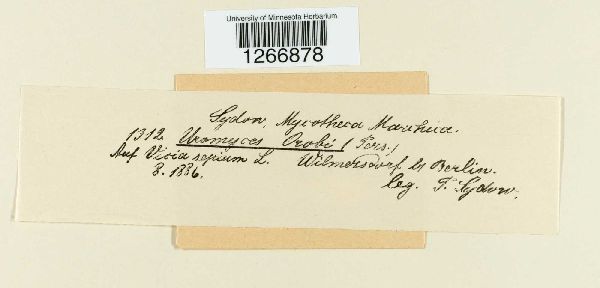 University of Minnesota Herbarium
1266878
Sydow, Mycotheca Marchica.
1312. Uromyces Orobi (Pers.)
Auf Vicia sepium L. Wilmersdorf b/ Berlin.
8. 1886. leg. P. Sydow.